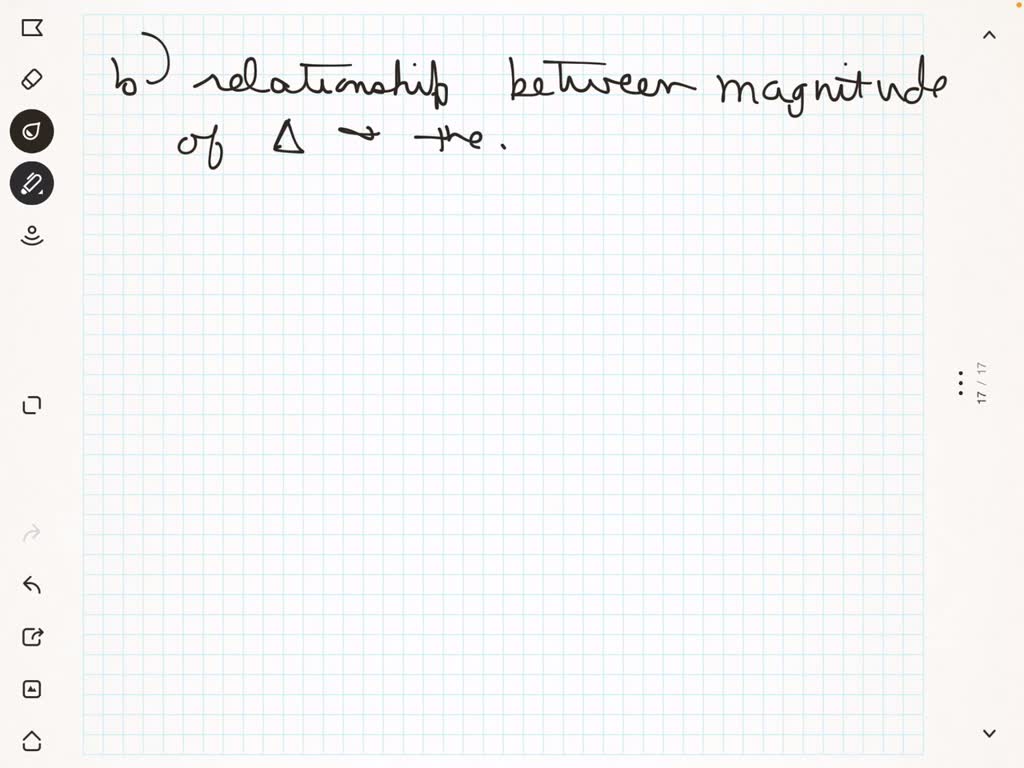 b) relationship between magnitude
of Δ → the.
17 / 17